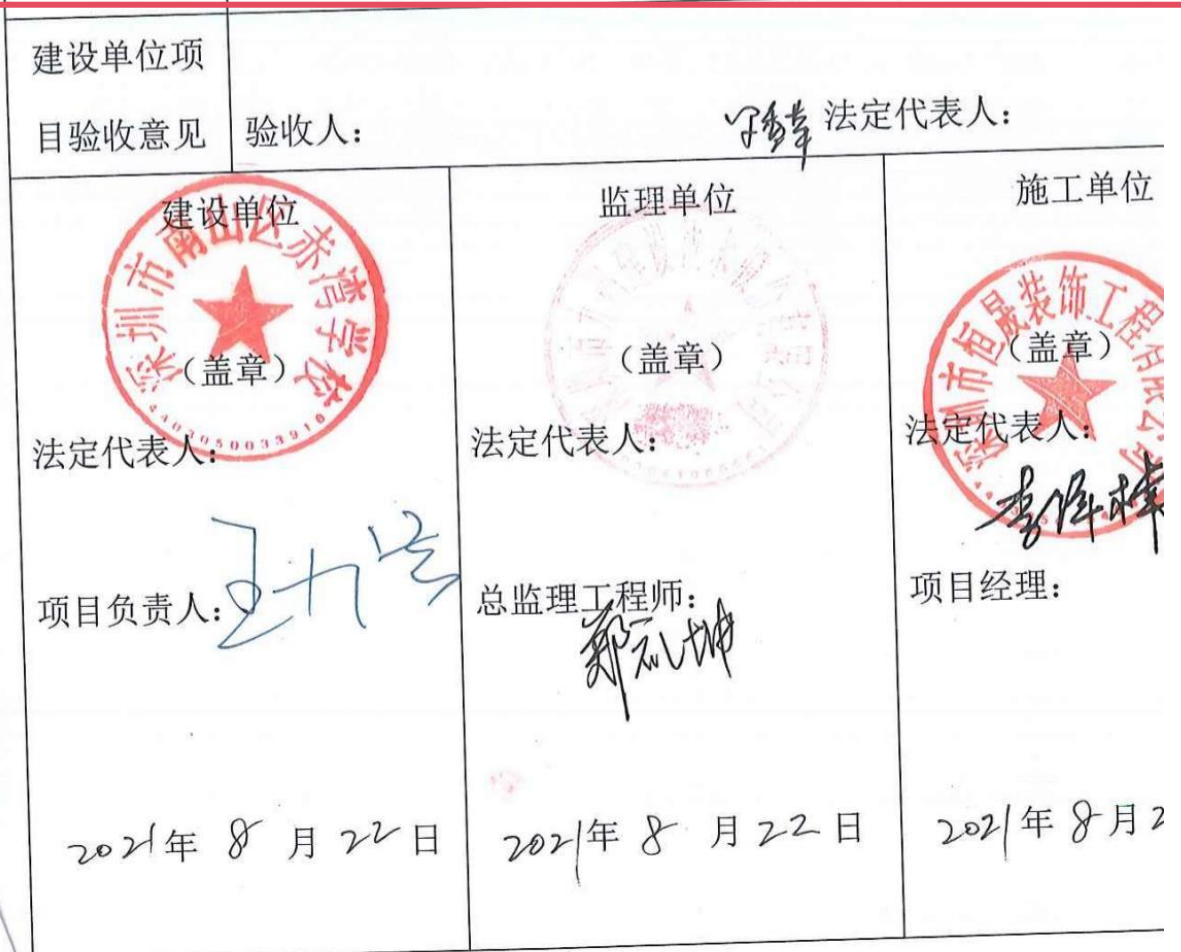 建设单位项
目验收意见
验收人：
法定代表人：
建设单位
深圳市南山区赤湾学校
（盖章）
法定代表人：
项目负责人：
2021年 8 月 22 日
监理单位
（盖章）
法定代表人：
总监理工程师：
郑礼坤
2021年 8 月 22 日
施工单位
深圳市恒晟装饰工程有限公司
（盖章）
法定代表人：
项目经理：
2021年 8 月 2